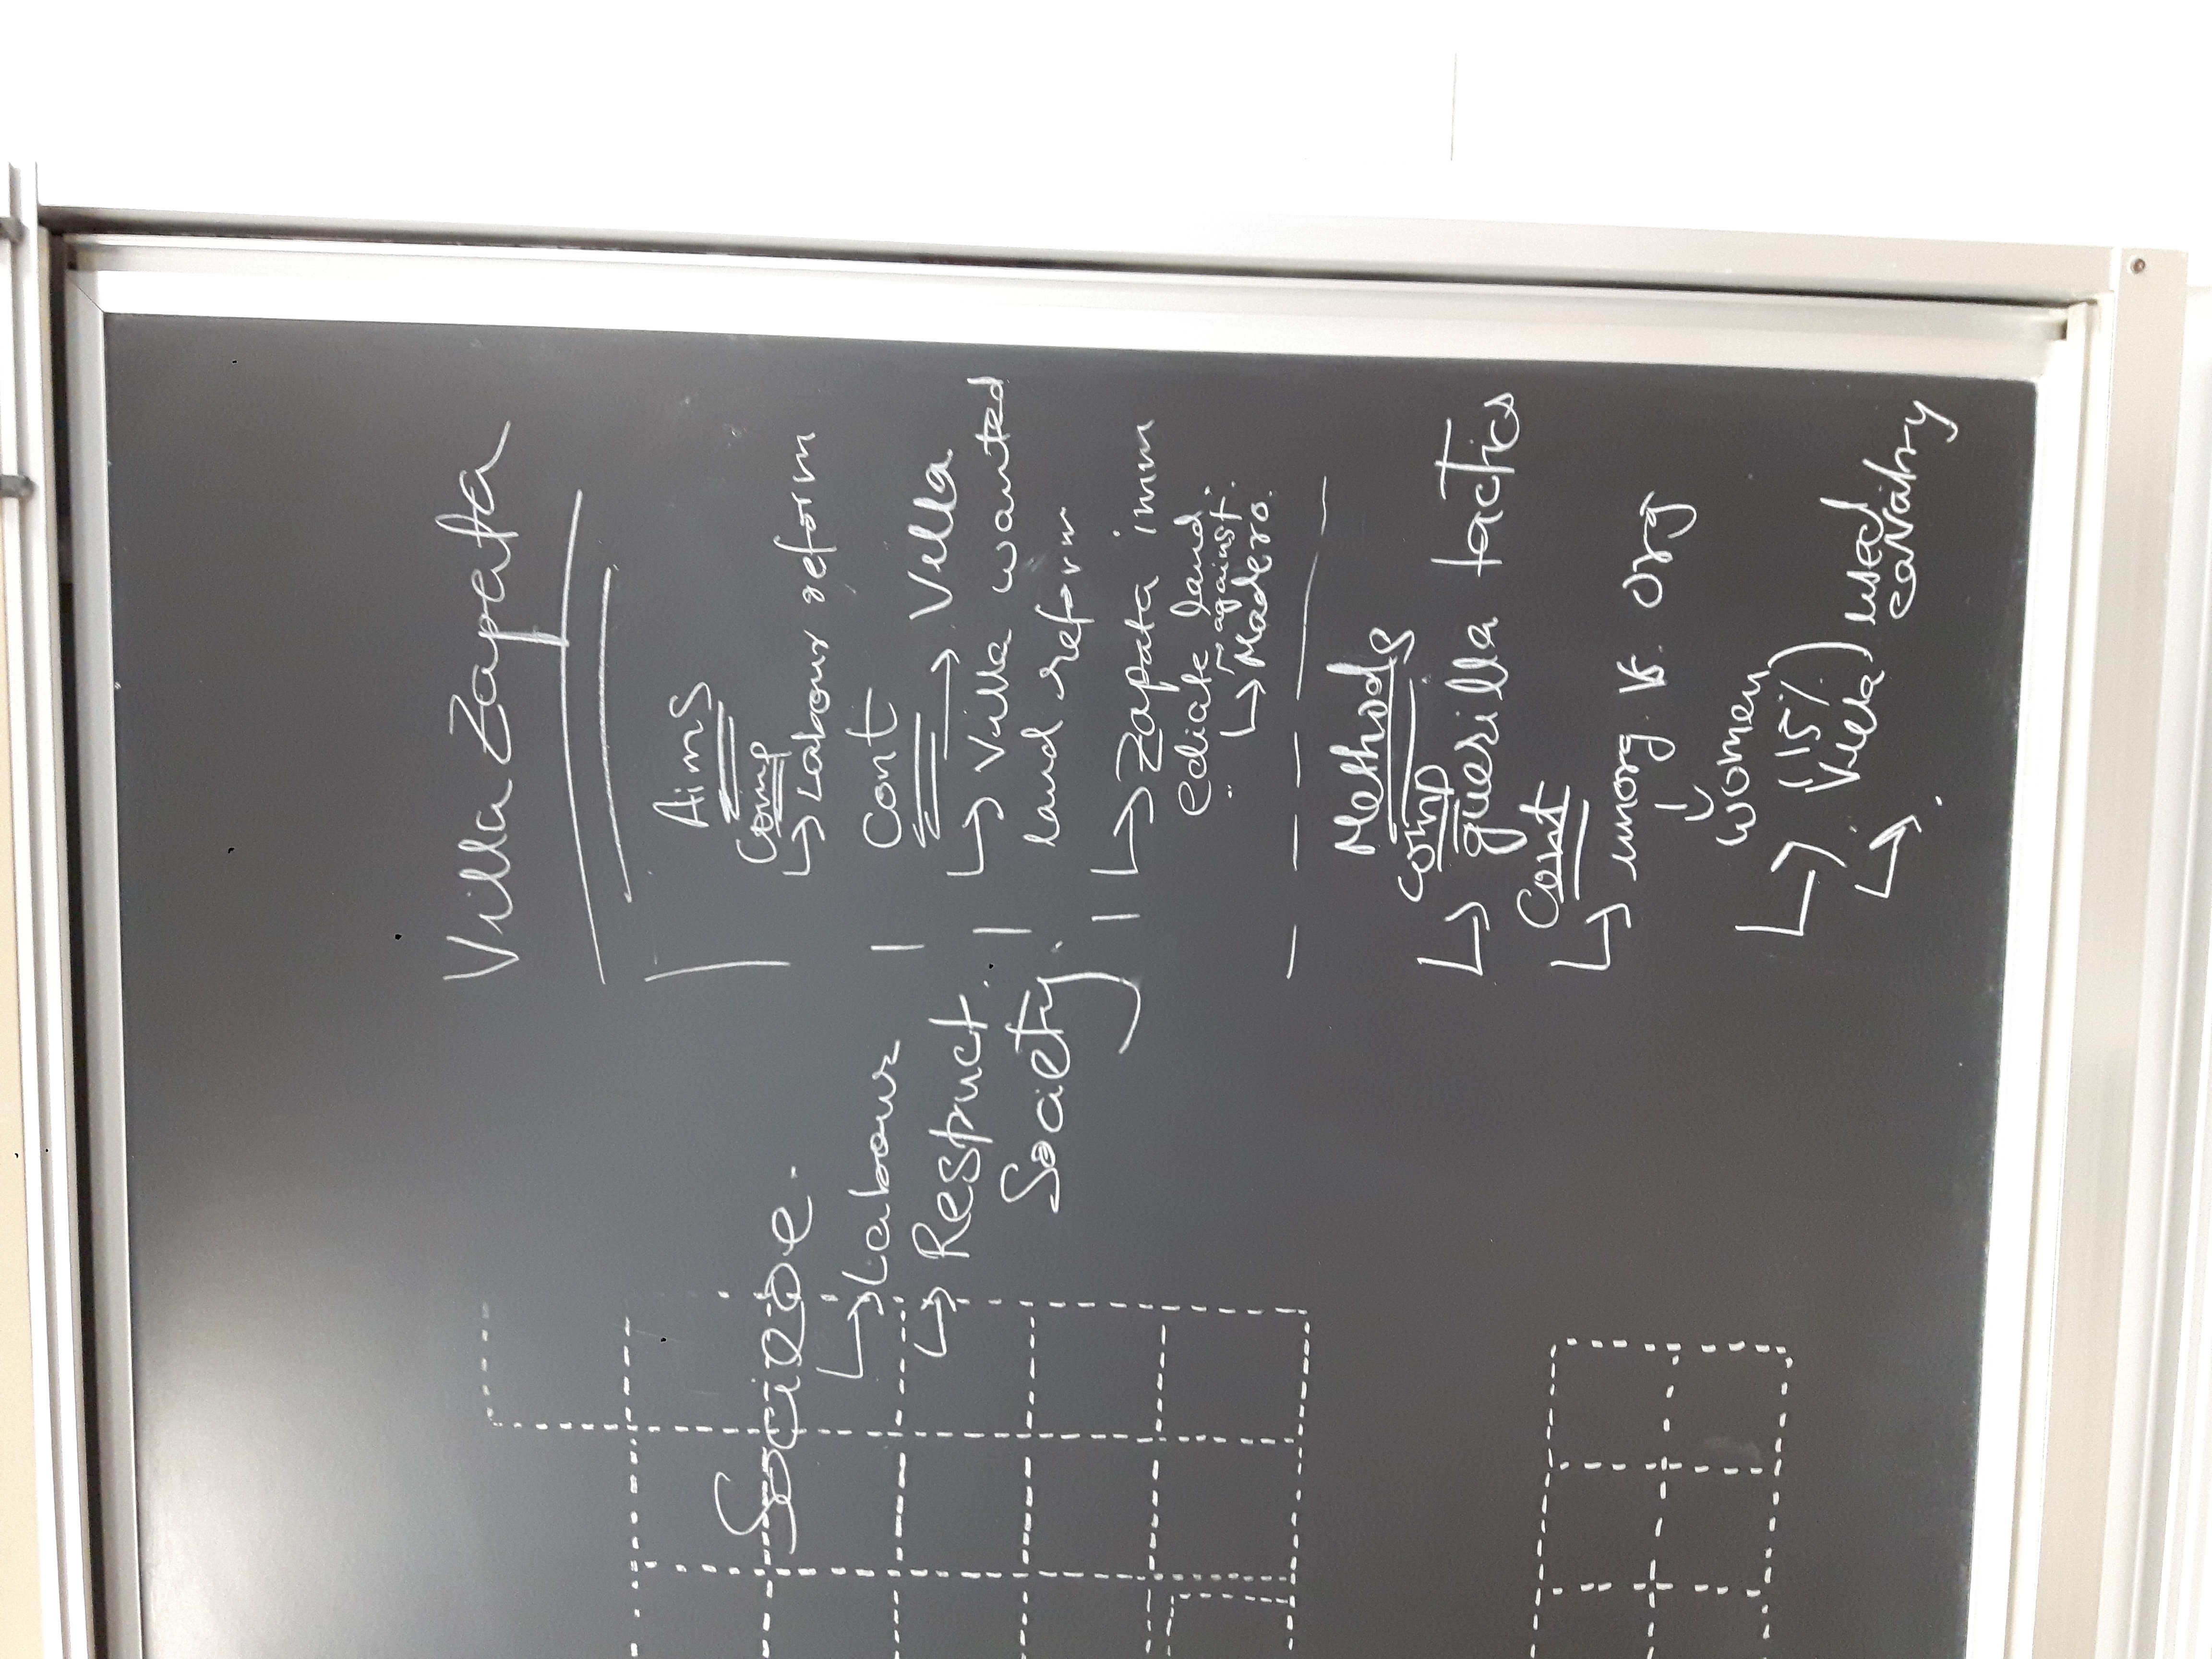 Villa Zapata
Aims
Comp
↳ Labour reform
Cont
→ Villa
↳ Villa wanted
land reform
↳ Zapata imm
ediate land
∵ against.
↳ Madero.
Methods
Comp
↳ guerilla tactics
Cont
↳ unorg vs. org
women
↳ (15%)
Villa) used
cavalry
↳ Labour
↳ Restruct.
Society.